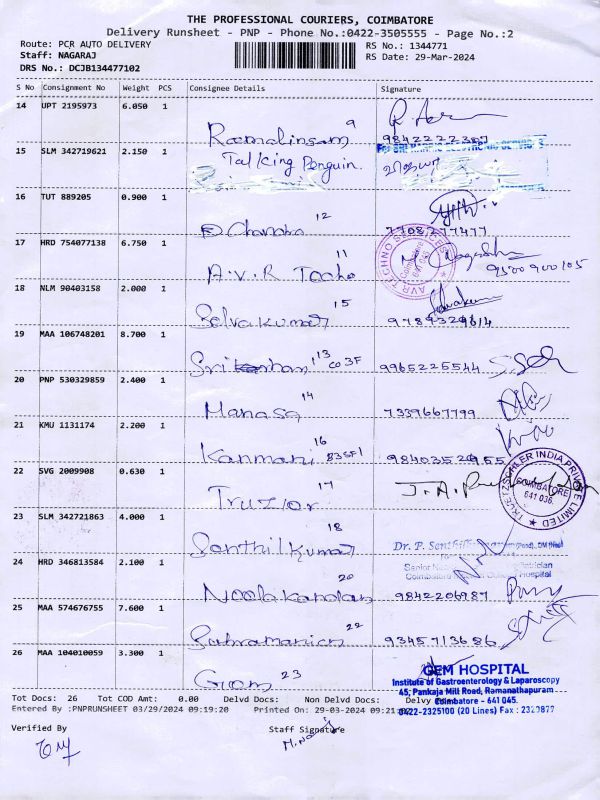 THE PROFESSIONAL COURIERS, COIMBATORE
Delivery Runsheet - PNP - Phone No.:0422-3505555 - Page No.:2
Route: PCR AUTO DELIVERY
RS No.: 1344771
Staff: NAGARAJ
RS Date: 29-Mar-2024
DRS No.: DCJB134477102
S No Consignment No Weight PCS Consignee Details Signature
14 UPT 2195973 6.050 1
9
Ramalinsam 9842222307
15 SLM 342719621 2.150 1
Talking Penguin.
16 TUT 889205 0.900 1
12
Chandra 7708277477
17 HRD 754077138 6.750 1
11
A.V.R Techo 9500900105
AVR TECHNO SERVICES
Coimbatore
641 045
18 NLM 90403158 2.000 1
15
Selvakumar 9789329614
19 MAA 106748201 8.700 1
13 CO3F
9965225544
20 PNP 530329859 2.400 1
14
Manasa 7339667799
21 KMU 1131174 2.200 1
16 B3SF1
Kanmani 9840352955
22 SVG 2009908 0.630 1
17
Truzlor J.A.
TRUETZSCHLER INDIA PRIVATE LIMITED
COIMBATORE
641 036.
23 SLM 342721863 4.000 1
18
Senthilkumar Dr. P.
Hospital
24 HRD 346813584 2.100 1
20
Neelakandan 9842206987
25 MAA 574676755 7.600 1
22
Subramanian 9345713686
26 MAA 104010059 3.300 1
Gem 23
GEM HOSPITAL
Institute of Gastroenterology & Laparoscopy
45, Pankaja Mill Road, Ramanathapuram
Coimbatore - 641 045.
0422-2325100 (20 Lines) Fax : 2320877
Tot Docs: 26 Tot COD Amt: 0.00 Delvd Docs: Non Delvd Docs: Delvy
Entered By :PNPRUNSHEET 03/29/2024 09:19:20 Printed On: 29-03-2024 09:21:
Verified By Staff Signature